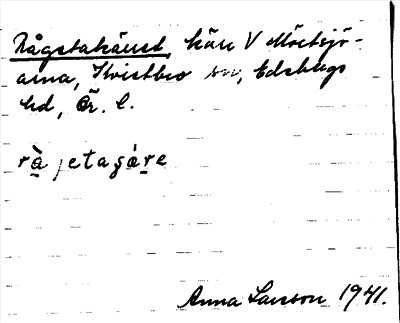 Rågetakäust, kärr V Mörtsjö-
arna, Kvistbro sn, Edsbergs
hd, Ör. l.
rà jetagáre
Anna Larsson 1941.